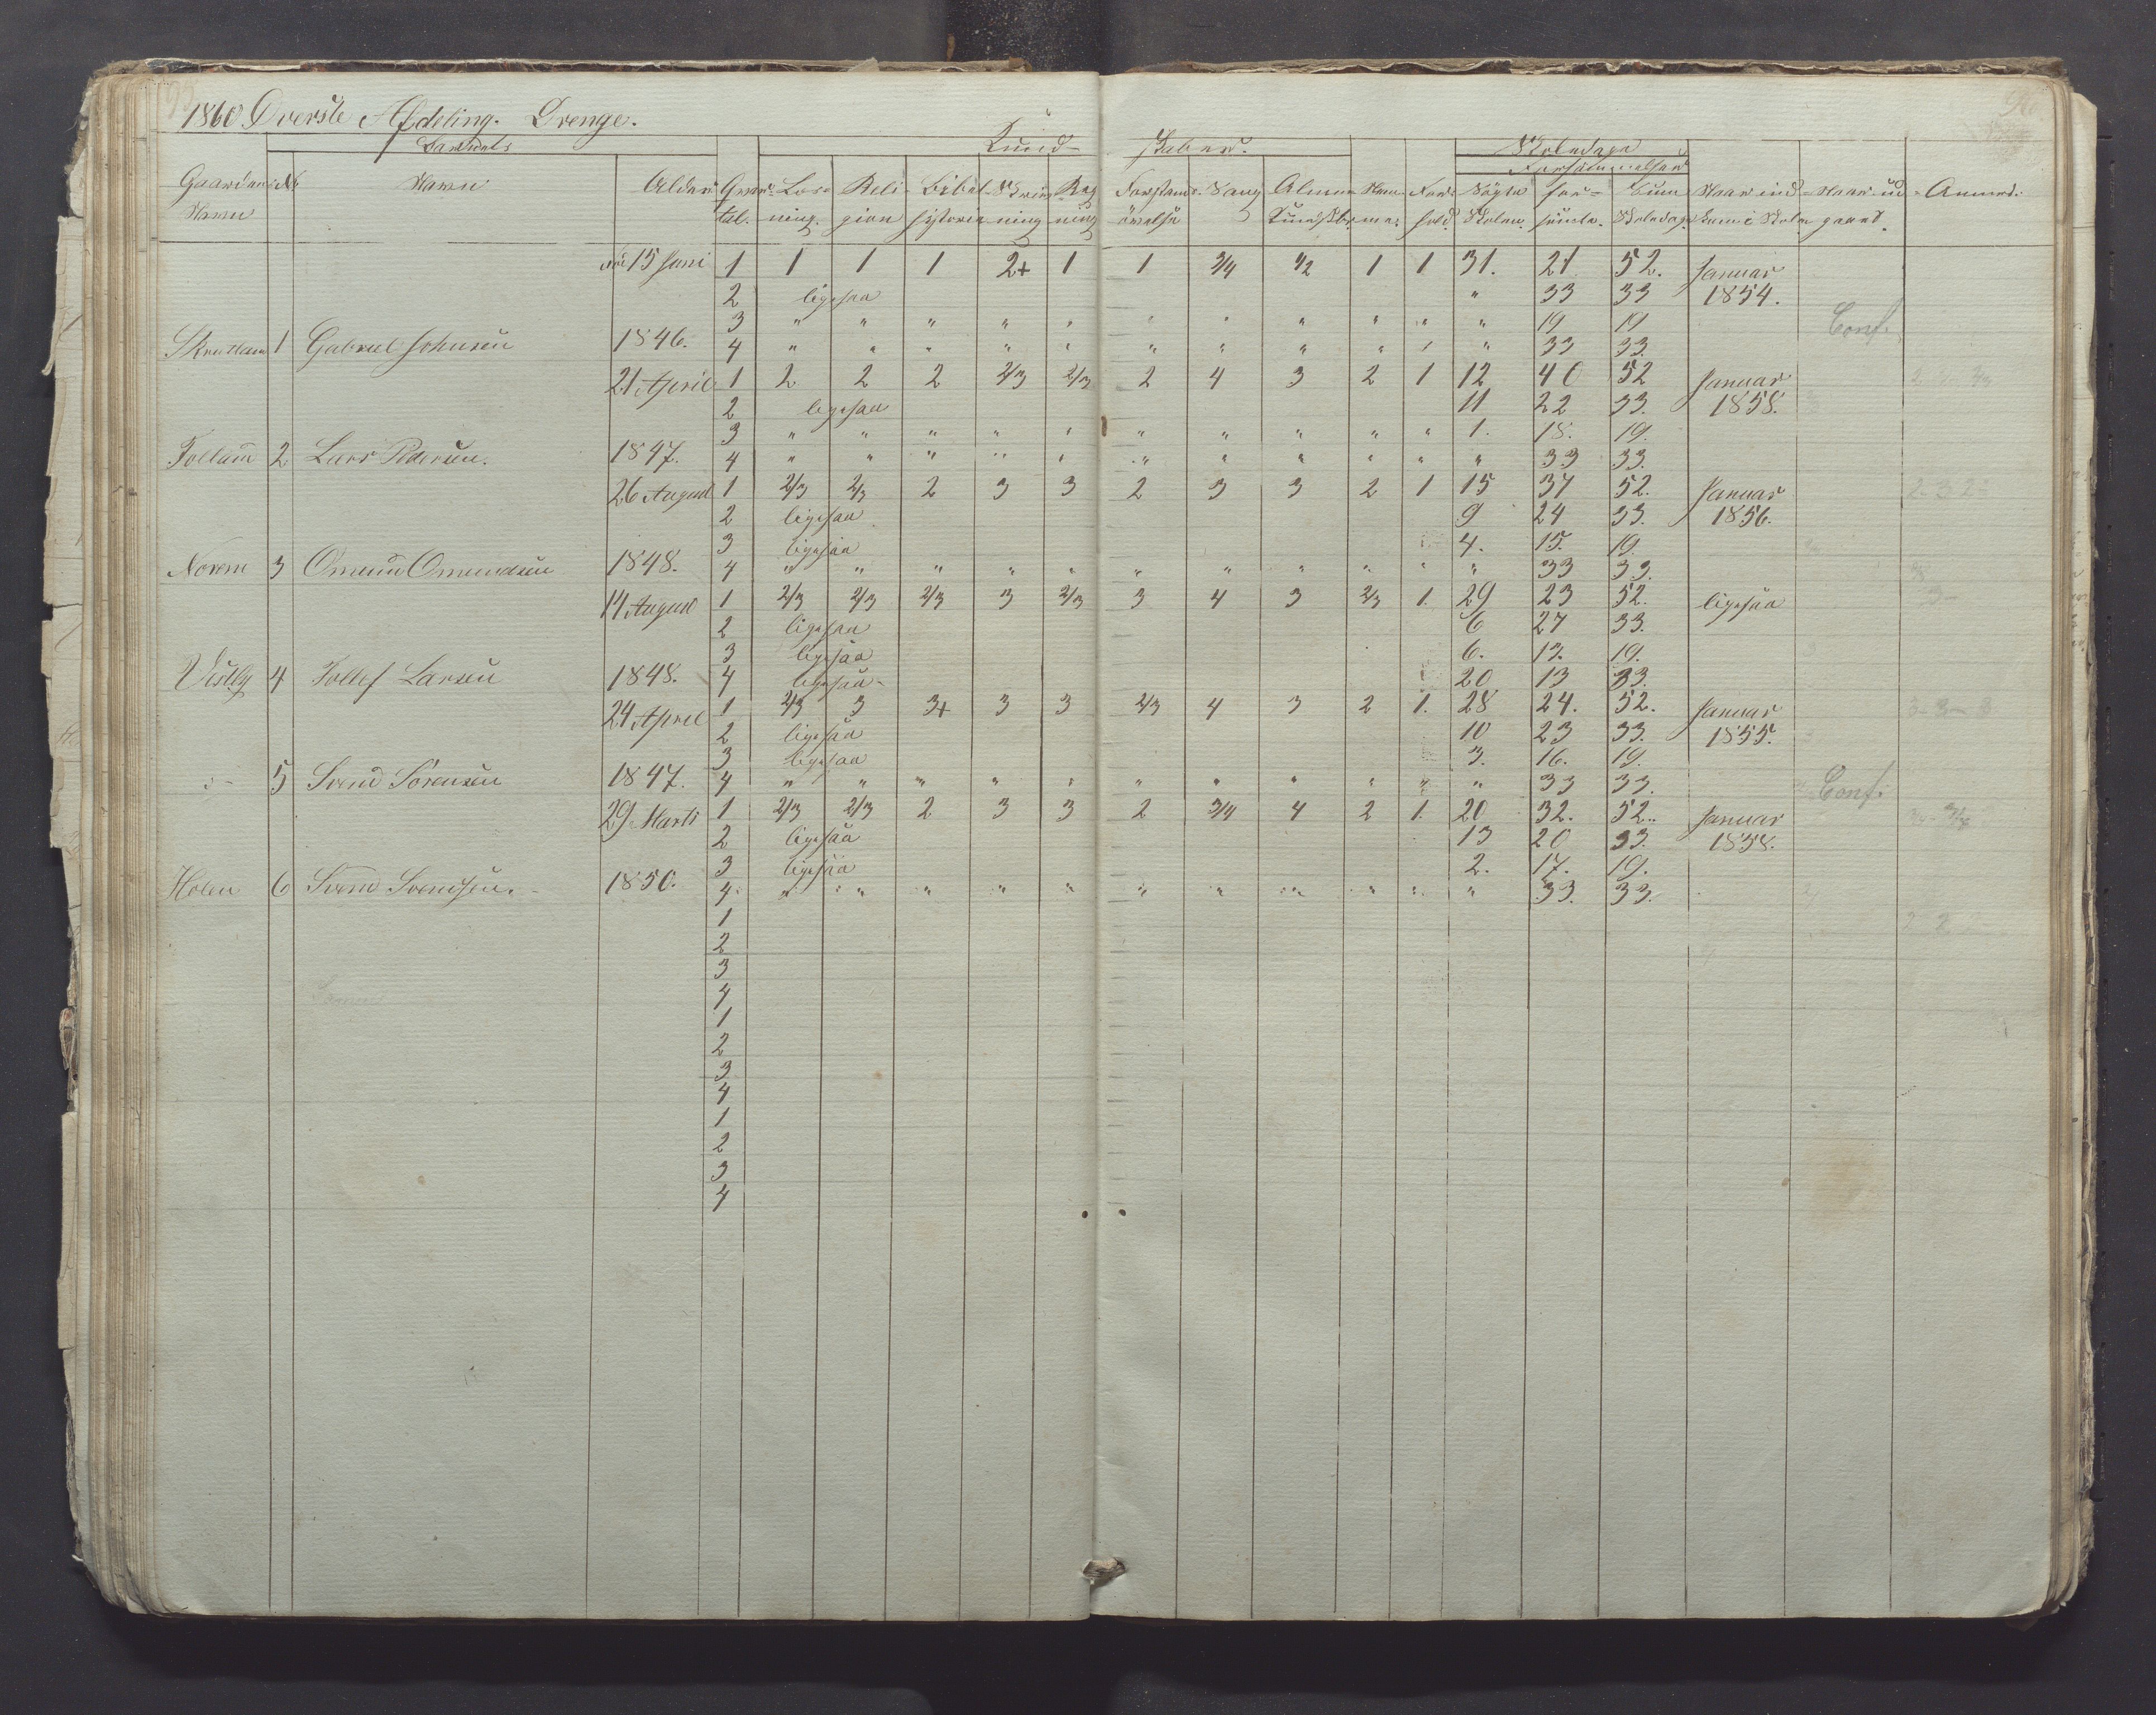 1860 Øverste Afdeling. Drenge.
Barnets Kund- skaber. Skoledage
Forsømmelser
Gaardens No Navn Alder Qvar- Læs- Reli- Bibel- Skriv- Reg- Forstands- Sang Almen- Evne- For- Søgte for- Sum Naar ind- Naar ud- Anmærk.
Navn tal. ning. gion historie ning ning øvelse Kundskb. hold. Skolen. sømte. Skoledage. kom i Skolen gaaet.
født 15 Juni 1 1 1 1 2+ 1 1 3/4 1/2 1 1 31. 21 52. Januar
2 ligesaa " 33 33 1854.
3 " " " " " " " " " " " 19 19 Conf.
1 Gabriel Johnsen 1846. 4 " " " " " " " " " " " 33 33.
21 April 1 2 2 2 2/3 2/3 2 4 3 2 1 12 40 52 Januar
2 ligesaa 11 22 33. 1858.
3 " " " " " " " " " " 1. 18. 19.
Tolleim 2 Lars Pedersen. 1847. 4 " " " " " " " " " " " 33 33.
26 August 1 2/3 2/3 2 3 3 2 3 3 2 1 15 37 52. Januar
2 ligesaa 9 24 33. 1856.
3 ligesaa 4. 15. 19.
Norem 3 Omund Omundsen 1848. 4 " " " " " " " " " " " 33 33.
14 August 1 2/3 2/3 2/3 3 2/3 3 4 3 2/3 1. 29 23 52. ligesaa
2 ligesaa 6 27 33.
3 ligesaa 6. 13. 19.
Vestby 4 Tollef Larsen 1848. 4 ligesaa 20 13 33.
24 April 1 2/3 3 3+ 3 3 2/3 4 3 2 1. 28 24. 52. Januar
2 ligesaa 10 23 33. 1855.
3 ligesaa 3. 16. 19.
5 Svend Sørensen 1847. 4 " " " " " " " " " " " 33 33. Conf.
29 Marts 1 2/3 2/3 2 3 3 2 3/4 4 2 1. 20 32. 52. Januar
2 ligesaa 13 20 33. 1858.
3 ligesaa 2. 17. 19.
Holen 6 Svend Svendsen. 1850. 4 " " " " " " " " " " " 33. 33.
1
2
3
4
1
2
3
4
1
2
3
4